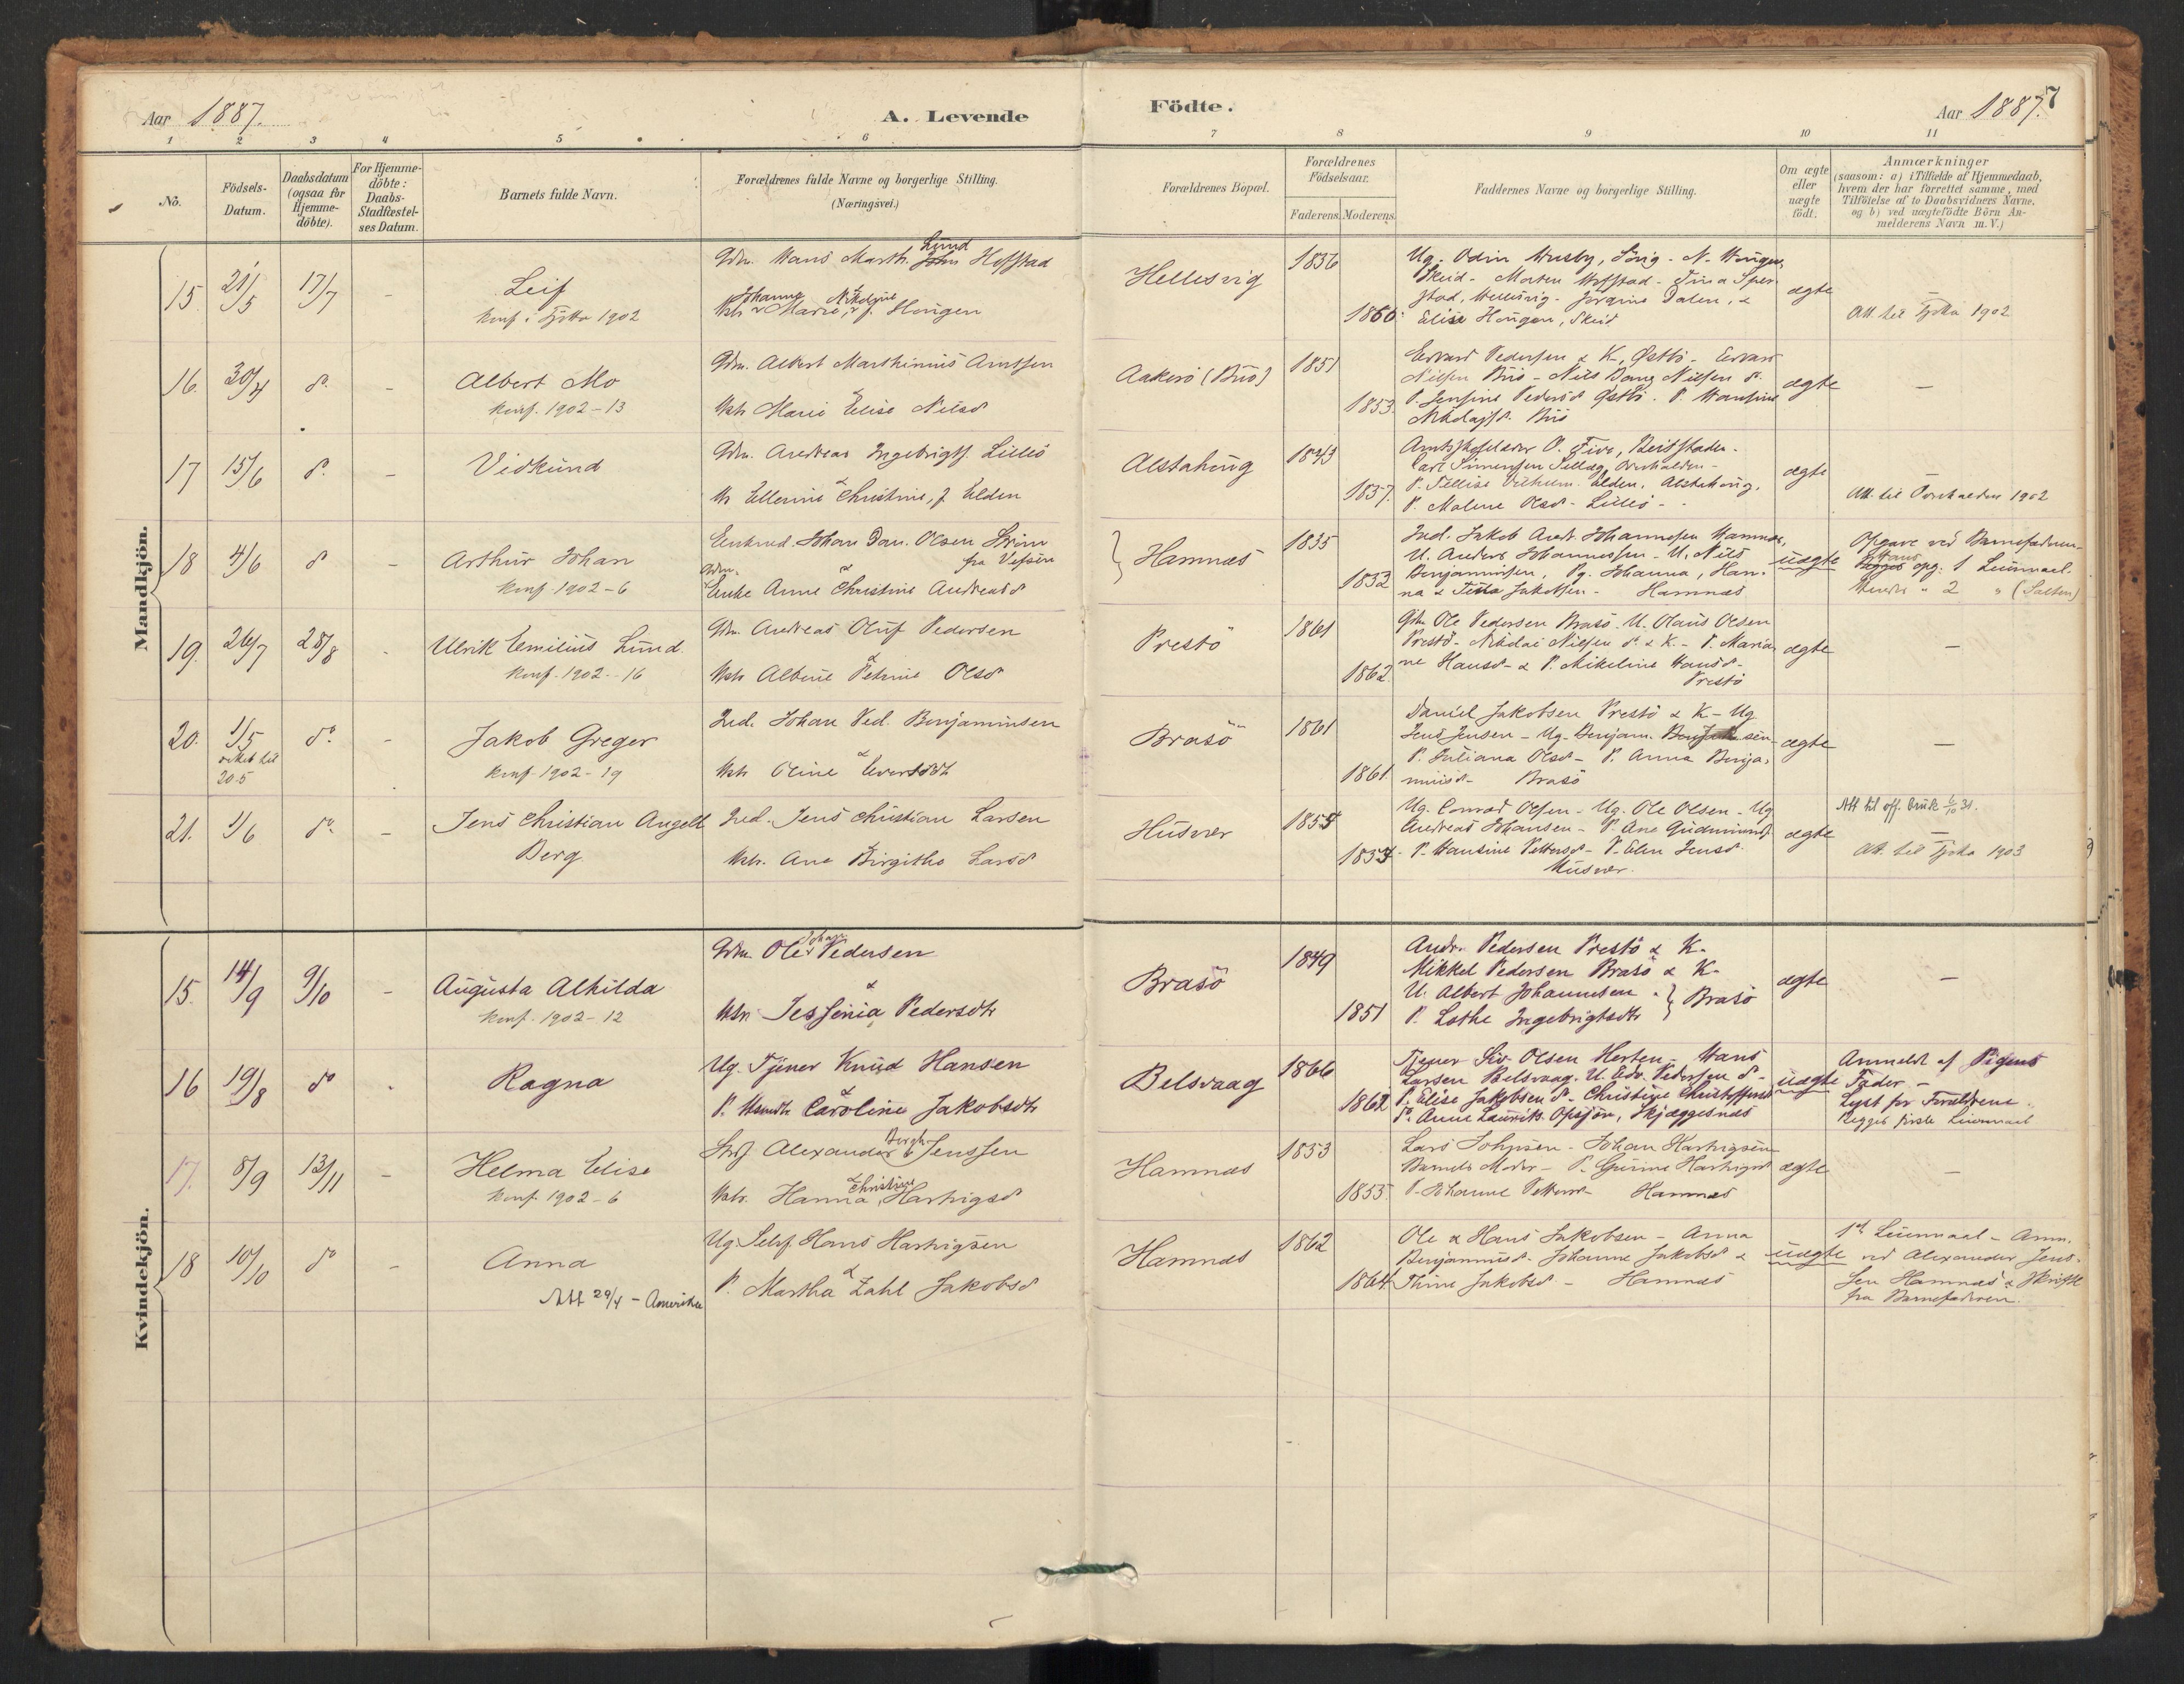 Aar 1887.
A. Levende
Födte.
Aar 1887.
7
1 2 3 4 5 6 7 8 9 10 11
No.
Födsels-
Datum.
Daabsdatum
(ogsaa for
Hjemme-
döbte).
For Hjemme-
döbte:
Daabs-
Stadfæstel-
ses Datum.
Barnets fulde Navn.
Forældrenes fulde Navne og borgerlige Stilling.
(Næringsvei.)
Forældrenes Bopæl.
Forældrenes
Födselsaar.
Faderens. Moderens.
Faddernes Navne og borgerlige Stilling.
Om ægte
eller
uægte
födt.
Anmærkninger
(saasom: a) i Tilfælde af Hjemmedaab,
hvem der har forrettet samme, med
Tilföielse af to Daabsvidners Navne.
og b) ved uægtefödte Börn An-
melderens Navn m.V.)
Mandkjön.
15 21/5 17/7 -
Leif
Konf. i Tjötta 1902
Gdm. Hans Marth. Lund Hofstad
Johanna Nikoline
Marie, f. Haugen
Hellesvig
1836
1860
Ug. Odin Husby,
Skeid - Morten Hofstad -
stad, Hellesvig - Jørgine Dalen, &
Elise Haugen, Skeid
ægte
-
Att. til Tjötta 1902
16. 30/4 do. -
Albert Mo
Konf. 1902 - 13
Gdm. Albert Marthinius Arntsen
&
Marie Elise Nilsd
Aakerö (Buö)
1851
1853
Edvard Pedersen & K-, Østbö - Edvard
Nilsen Buö - Nils Dang Nilsen do.
P. Jensine Pedersd Østbö. P. Hansine
Nikolajsd. Buö
ægte
-
17 15/6 do. -
Vidkund
Gdm. Andreas Ingebrigts. Lilleö
&
Ellerine Christine, f. Elden
Alstahaug
1843
1857
O. Five, Beitstaden -
Carl Simensen
Elden, Alstahaug,
P. Malene Olsd - Lilleö -
ægte
-
Att. til 1902
18 4/6 do -
Arthur Johan
Konf. 1902 - 6
Enkemd. Johan Dan. Olsen
fra Vefsen
&
Enke Anne Christine Andreasd
} Hamnæs
1835
1832
Ind. Jakob Andr. Johannesen Hamnæs,
U. Anders Johannessen - U. Nils
Benjaminsen, Pg. Johanna, Han-
na & Tina Jakobsen - Hamnæs
uægte
Opgave ved Barnefaderen
Hans opg: 1 Leiermaal.
Hendes " 2 " (Salten)
19. 26/7 28/8 -
Ulrik Emilius Lund.
Konf. 1902 - 16
Gdm. Andreas Oluf Pedersen
&
Albine Petrine Olsd
Prestö
1861
1862
Gdm. Ole Pedersen Brasö. U. Olaus Olsen
Prestö - Nikolai Nilsen do. & K. - P. Maria-
ne Hansd - & P. Mikeline Hansd -
Prestö
ægte
-
20. 1/5 do. -
rettet til
20.5
Jakob Greger
Konf. 1902 - 19
Ind. Johan Ped. Benjaminsen
&
Oline Evertsdt
Brasö
1861
1861
Daniel Jakobsen Prestö & K - Ug
Jens Jensen - Ug. Benjam.
P. Juliana Olsd - P. Anna Benja-
minsd - Brasö
ægte
-
21. 1/6 do. -
Jens Christian Angell
Berg
Ind. Jens Christian Larsen
&
Ane Birgitha Larsd
Husvær
1855
1853
Ug. Conrad Olsen - Ug. Ole Olsen - Ug
Andreas Johansen - P. Ane Gudmunds.
P. Hansine Pettersd - P. Elen Jensd.
Husvær.
ægte
Att til off. bruk 6/10 31.
-
Att. til Tjötta 1903
Kvindekjön.
15. 14/9 9/10 -
Augusta Alhilda
Konf. 1902 - 12
Gdm. Ole Johan Pedersen
&
Jessenia Pedersdt
Brasö
1849
1851
Andr. Pedersen Prestö & K-
Mikkel Pedersen Brasö & K-
U. Albert Johannesen
P. Lothe Ingebrigtsdt } Brasö
ægte
-
16 19/8 do -
Ragna
Ug. Tjener Knud Hansen
&
P. Caroline Jakobsdt
Belsvaag
1866
1862
Tjener Siv. Olsen Herten - Hans
Larsen Belsvaag. U. Edv. Pedersen do -
P. Elise Jakobsen do - Christine Christoffersd
P. Anne Laurits. Opsjøn, Skjæggesnæs
uægte
Anmeldt af Pigens
Fader -
Lyst for Forældrene.
Begges första Leiermaal
17. 8/9 13/11 -
Helma Elise
Konf. 1902 - 6
Alexander Bergh Jenssen
&
Hanna Christine Hartvigsd
Hamnæs
1853
1855
Lars Johnsen - Johan Hartvigsen
Barnets Moder - P. Gurine Hartvigsd
P. Johanne Pettersd - Hamnæs
ægte
-
18 10/10 do -
Anna
Att 29/4 - Amerika
Ug. Selvf. Hans Hartvigsen
&
P. Martha Zahl Jakobsd
Hamnæs
1862
1864
Ole & Hans Jakobsen - Anna
Benjaminsd - Johanne Jakobsd &
Thine Jakobsd - Hamnæs
uægte
1st Leiermaal - Anm.
ved Alexander Jens-
sen Hamnæs & Skriftl
fra Barnefaderen.